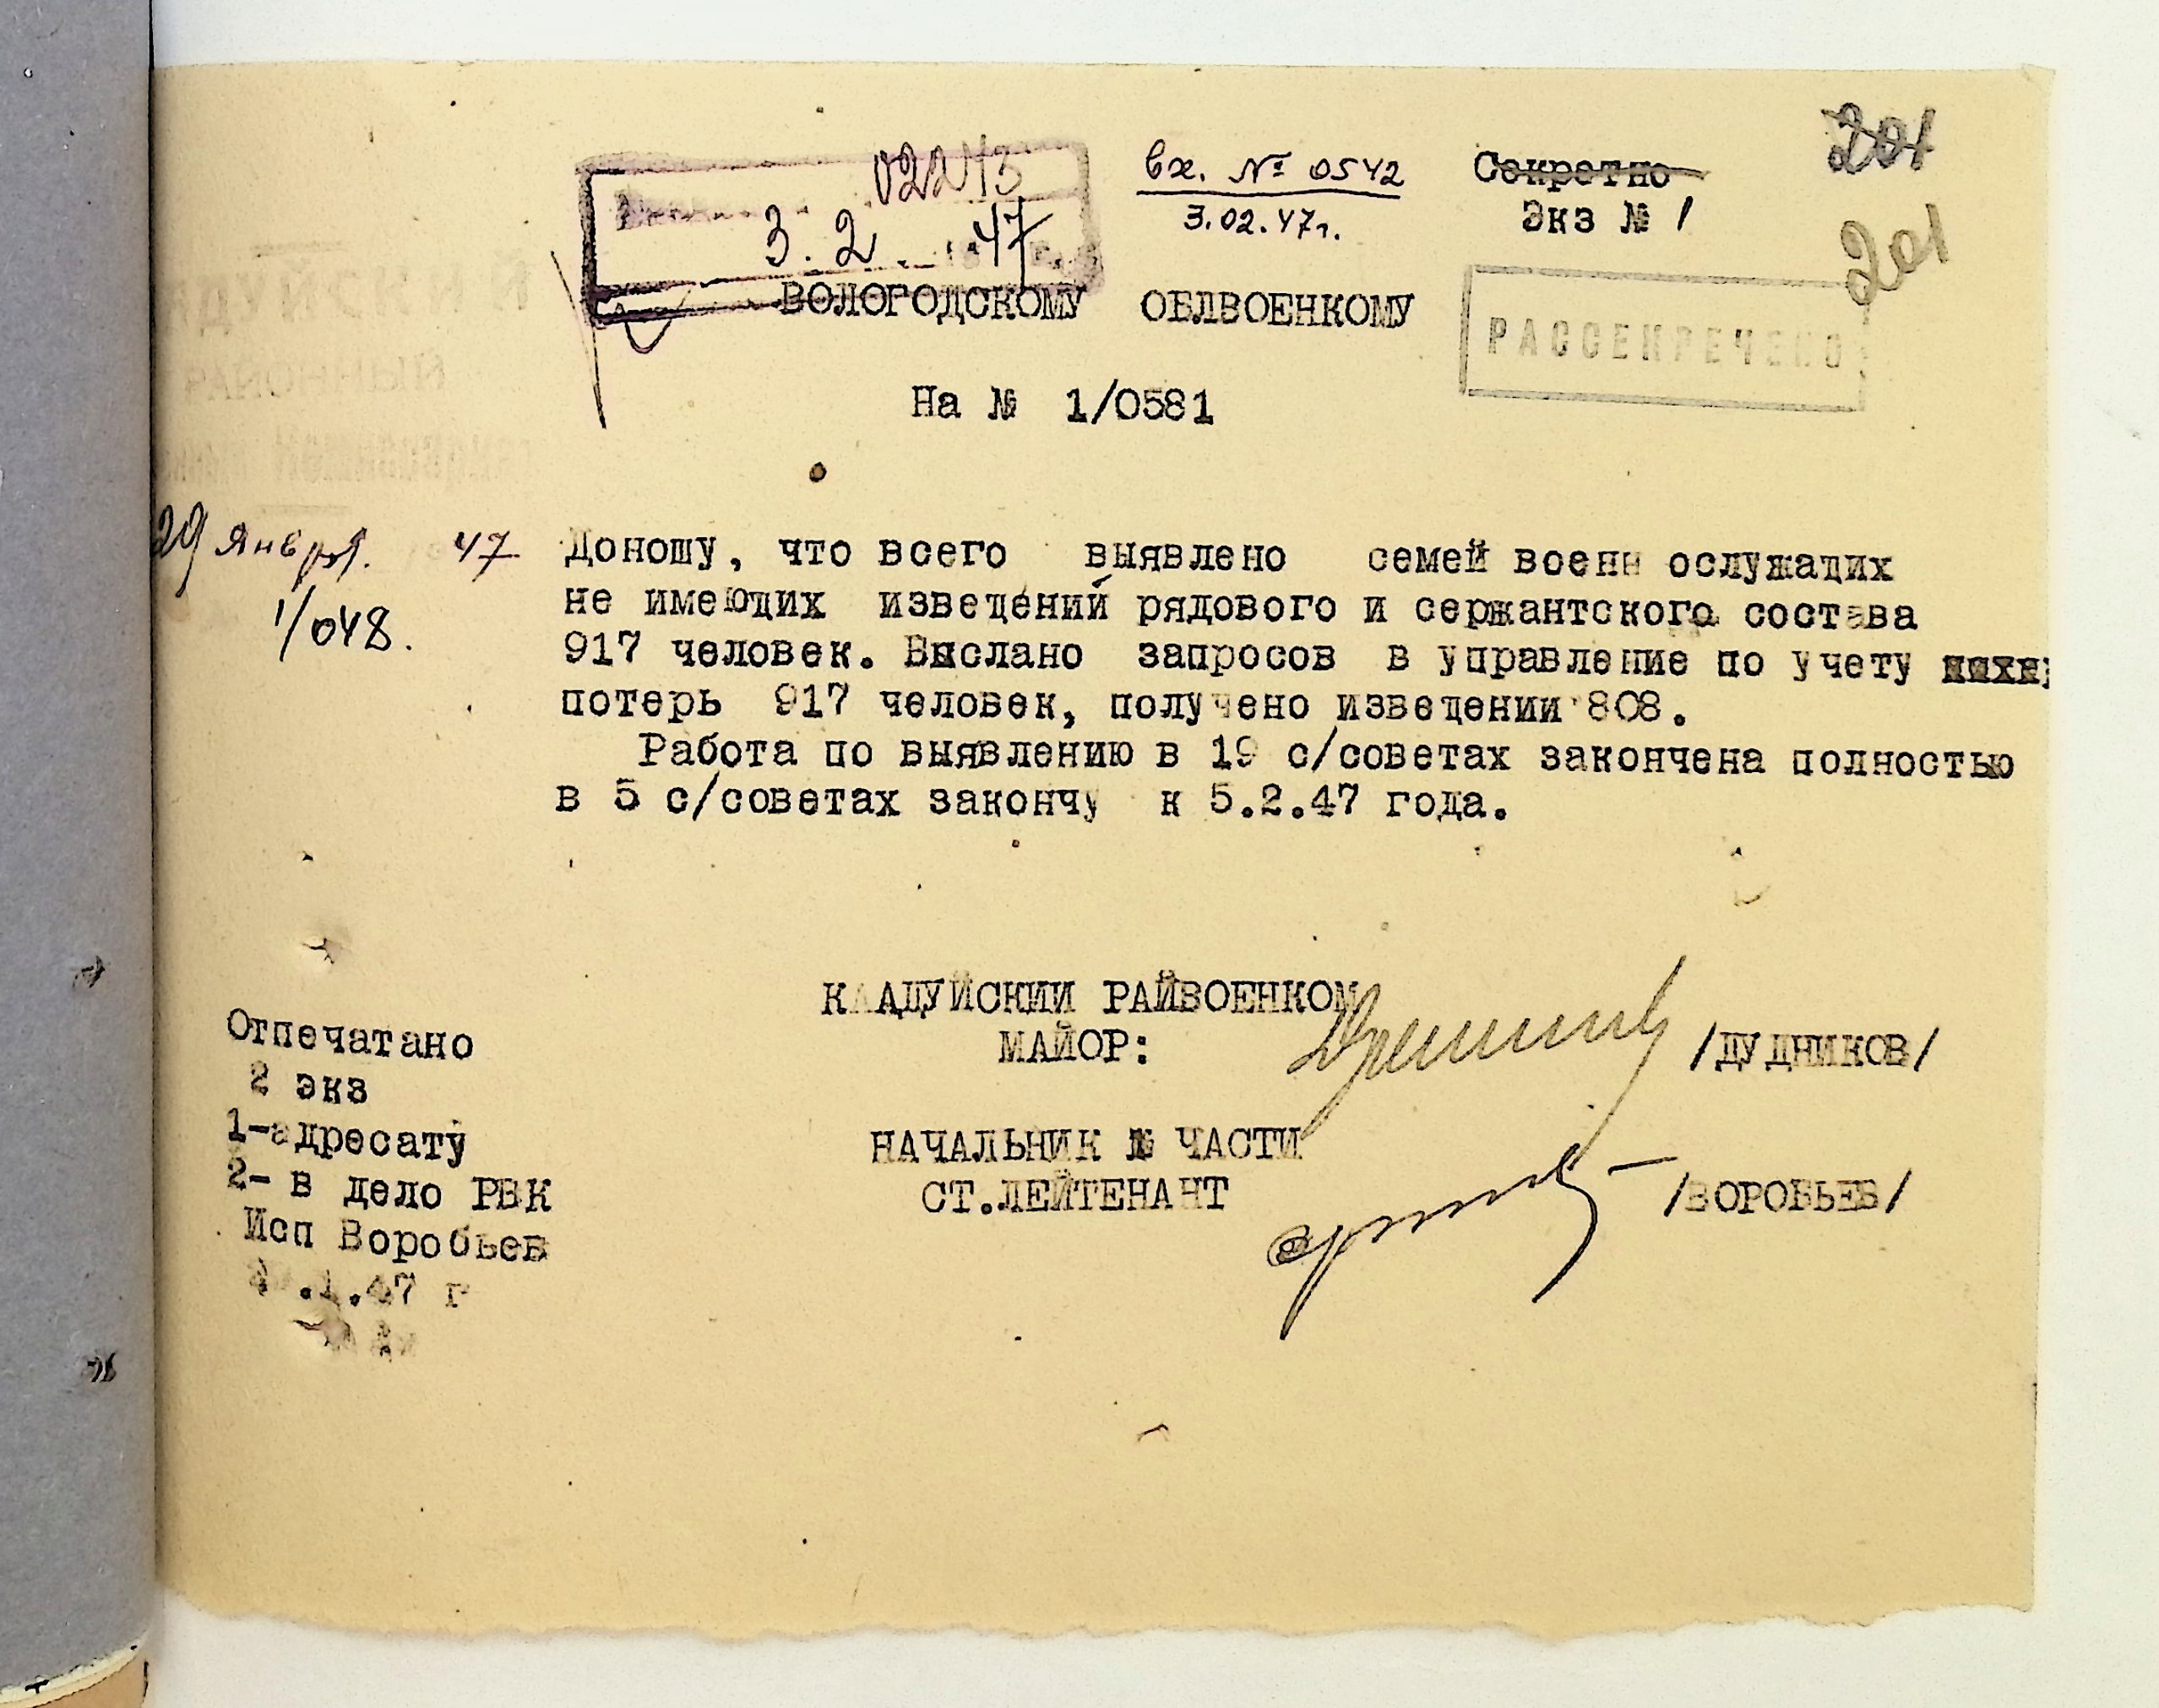 201
02243
вх. № 0542
Секретно
3. 2 47
3.02.47г.
Экз № 1
201
ВОЛОГОДСКОМУ ОБЛВОЕНКОМУ
РАССЕКРЕЧЕНО
На № 1/0581
29 января. 47
1/048.
Доношу, что всего выявлено семей военнослужащих
не имеющих извещений рядового и сержантского состава
917 человек. Выслано запросов в управление по учету
потерь 917 человек, получено извещении 808.
Работа по выявлению в 19 с/советах закончена полностью
в 5 с/советах закончу к 5.2.47 года.
КААДУЙСКИИ РАЙВОЕНКОМ
МАЙОР: /ДУДНИКОВ/
НАЧАЛЬНИК ЧАСТИ
СТ.ЛЕЙТЕНАНТ /ВОРОБЬЕВ/
Отпечатано
2 экз
1-адресату
2- в дело РВК
Исп Воробьев
.1.47 г